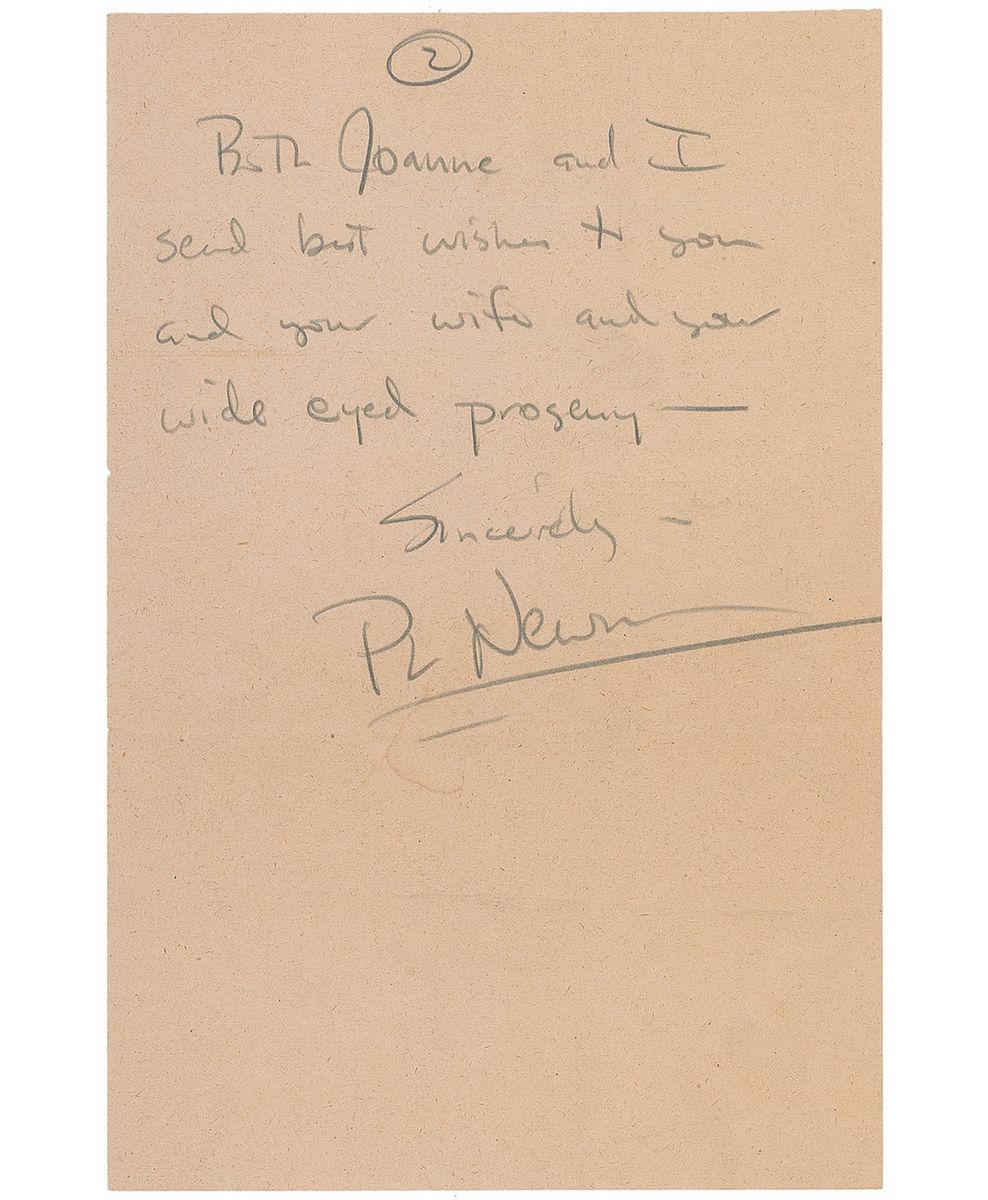 2
Both Joanne and I
send best wishes to you
and your wife and your
wide eyed progeny —
Sincerely -
PL Newman